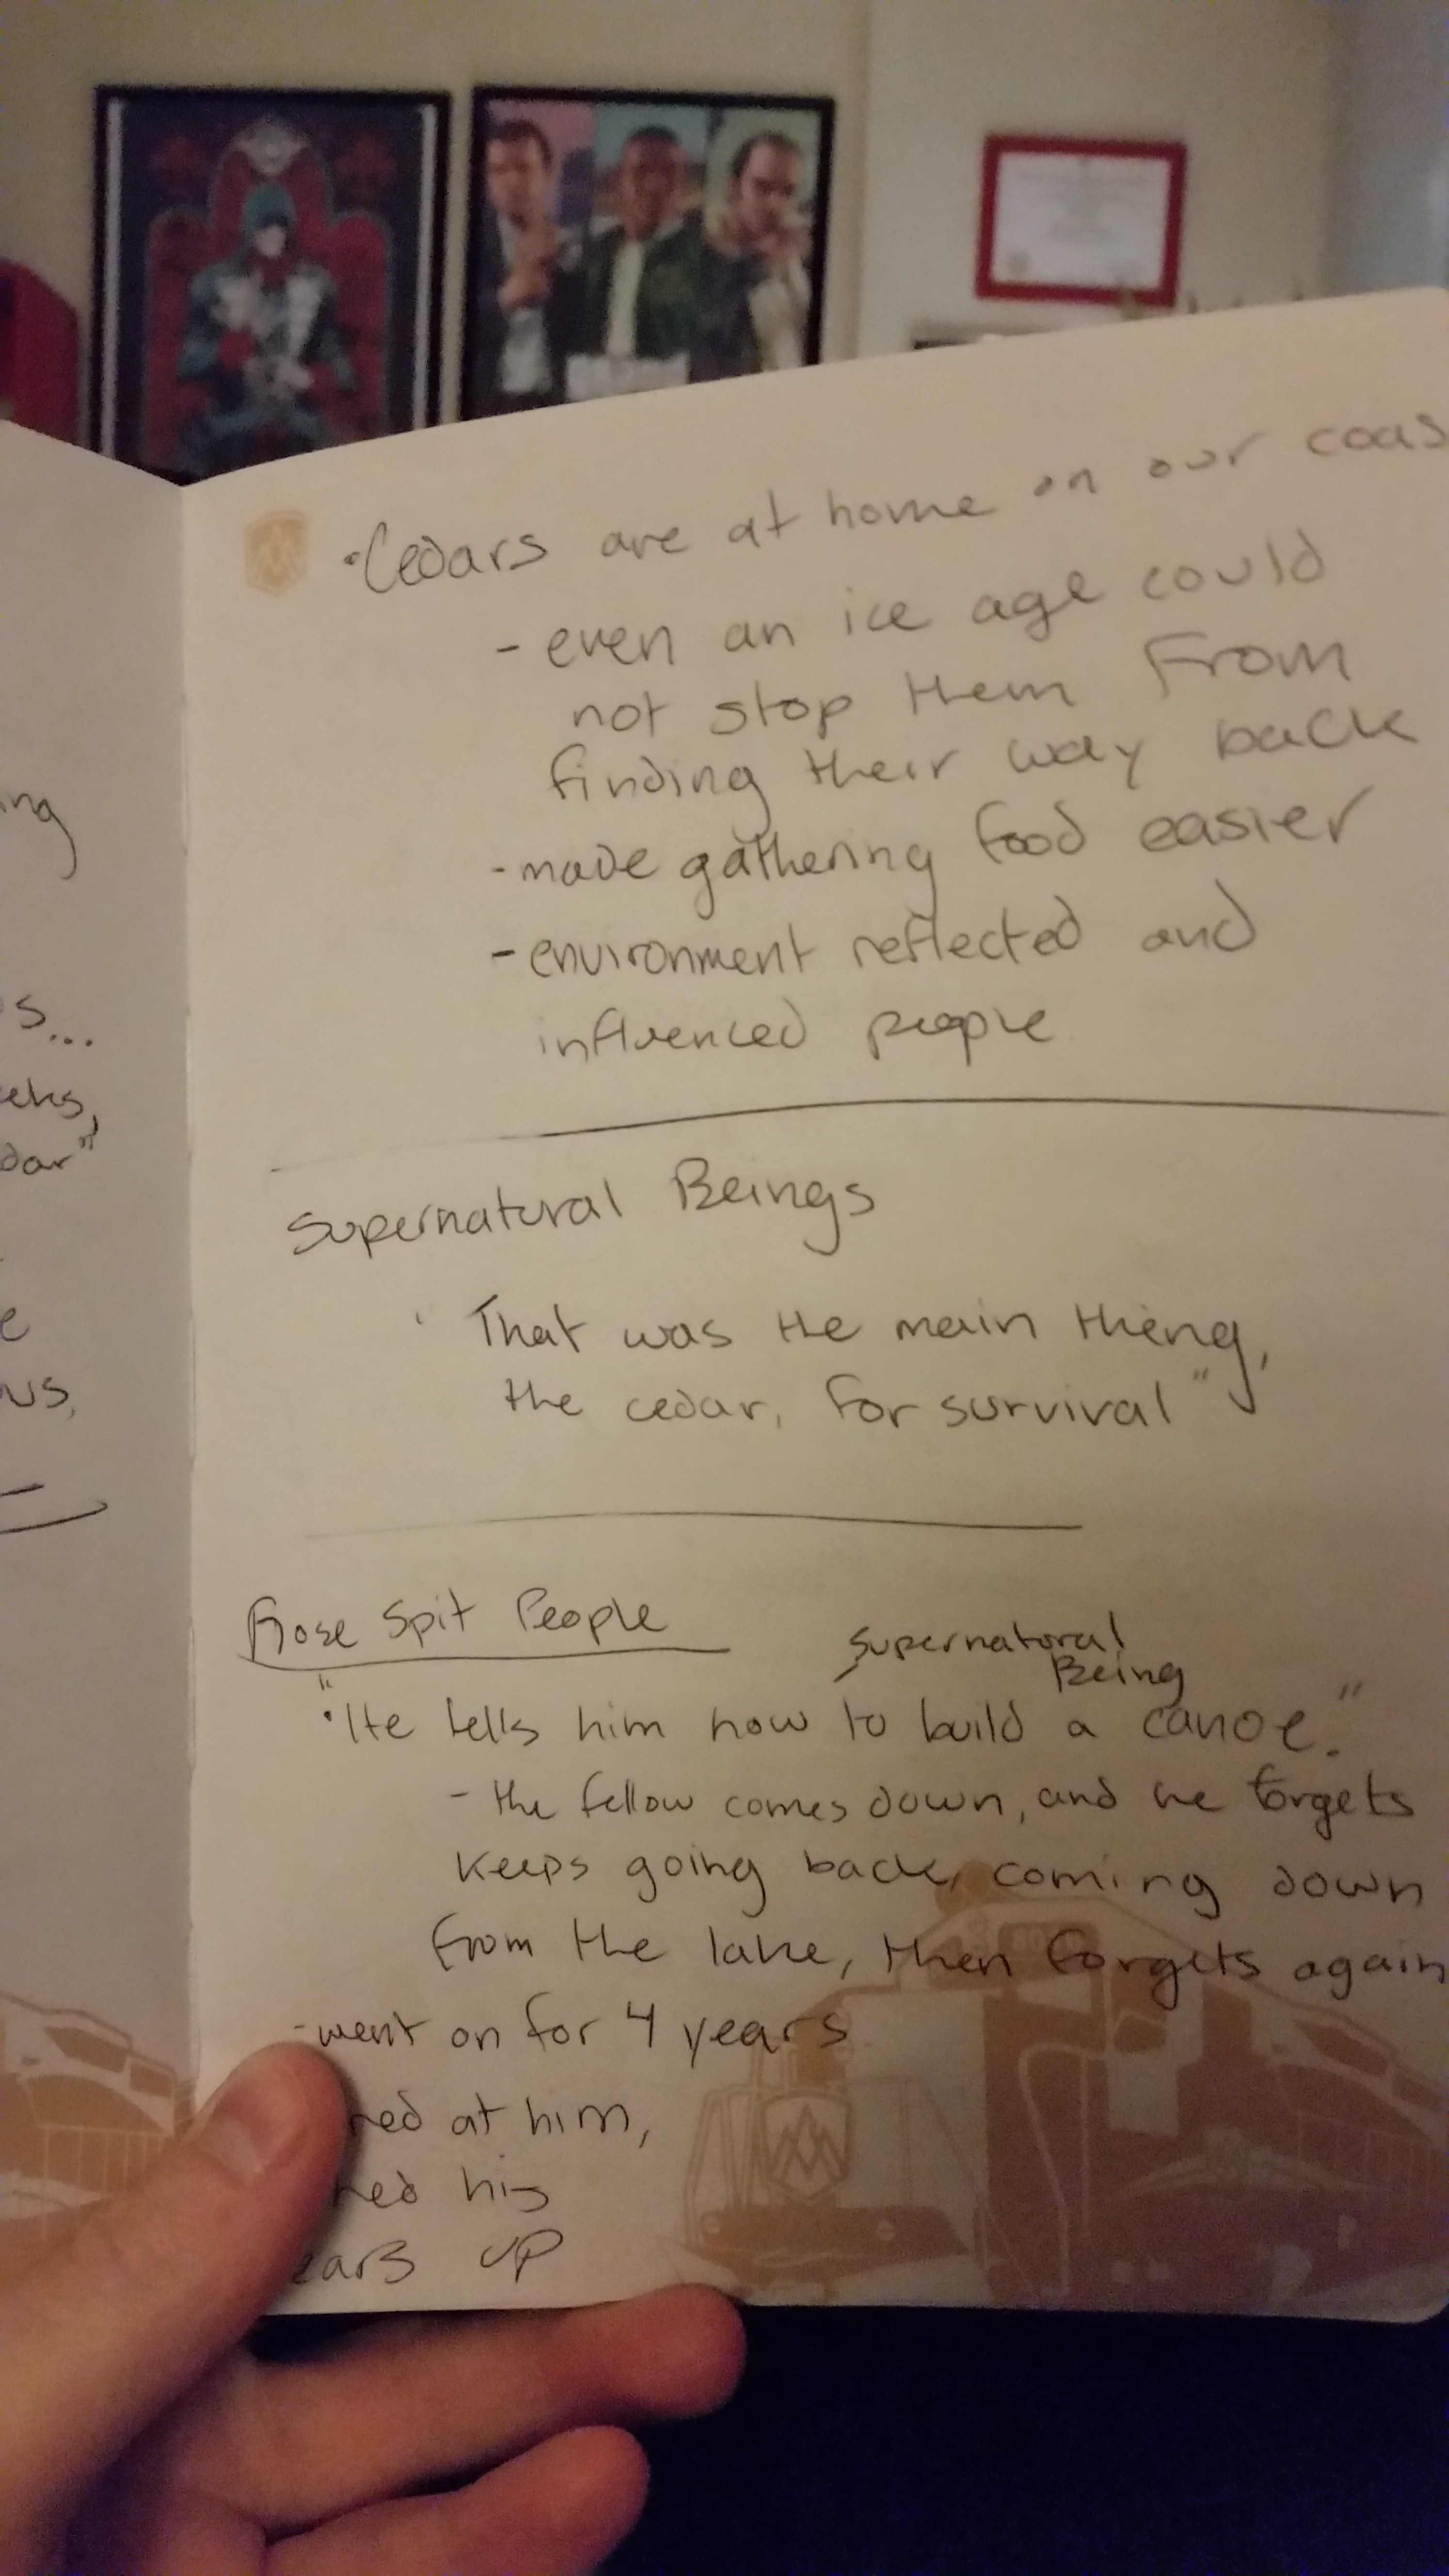 ing
s...
eeks,
dar"
e
ws,
•Cedars are at home on our coas
- even an ice age could
not stop them From
finding their way back
- made gathering food easier
- environment reflected and
influenced people
Supernatural Beings
" That was the main thing,
the cedar, for survival"
Rose Spit People
Supernatural
Being
"•He tells him how to build a canoe."
- the fellow comes down, and he forgets
keeps going back, coming down
from the lake, then forgets again
- went on for 4 years
red at him,
hed his
ears up